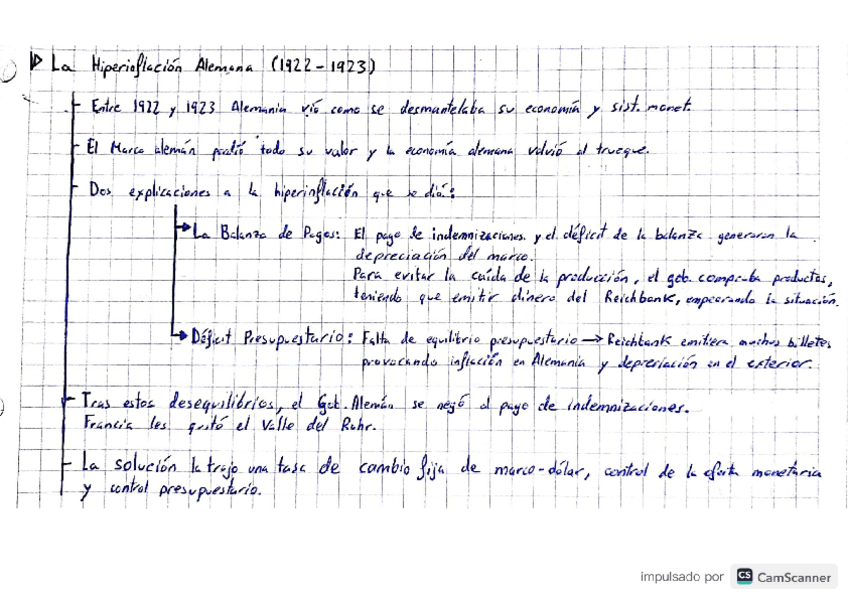 La Hiperinflación Alemana (1922-1923)
Entre 1922 y 1923 Alemania vió como se desmantelaba su economía y sist. monet.
El Marco alemán perdió todo su valor y la economía alemana volvió al trueque.
Dos explicaciones a la hiperinflación que se dió:
La Balanza de Pagos: El pago de indemnizaciones y el déficit de la balanza generaron la
depreciación del marco.
Para evitar la caída de la producción, el gob. compraba productos,
teniendo que emitir dinero del Reichbank, empeorando la situación.
Déficit Presupuestario: Falta de equilibrio presupuestario → Reichbank emitiera muchos billetes
provocando inflación en Alemania y depreciación en el exterior.
Tras estos desequilibrios, el Gob. Alemán se negó al pago de indemnizaciones.
Francia les quitó el Valle del Ruhr.
La solución la trajo una tasa de cambio fija de marco-dólar, control de la oferta monetaria
y control presupuestario.
impulsado por CS CamScanner